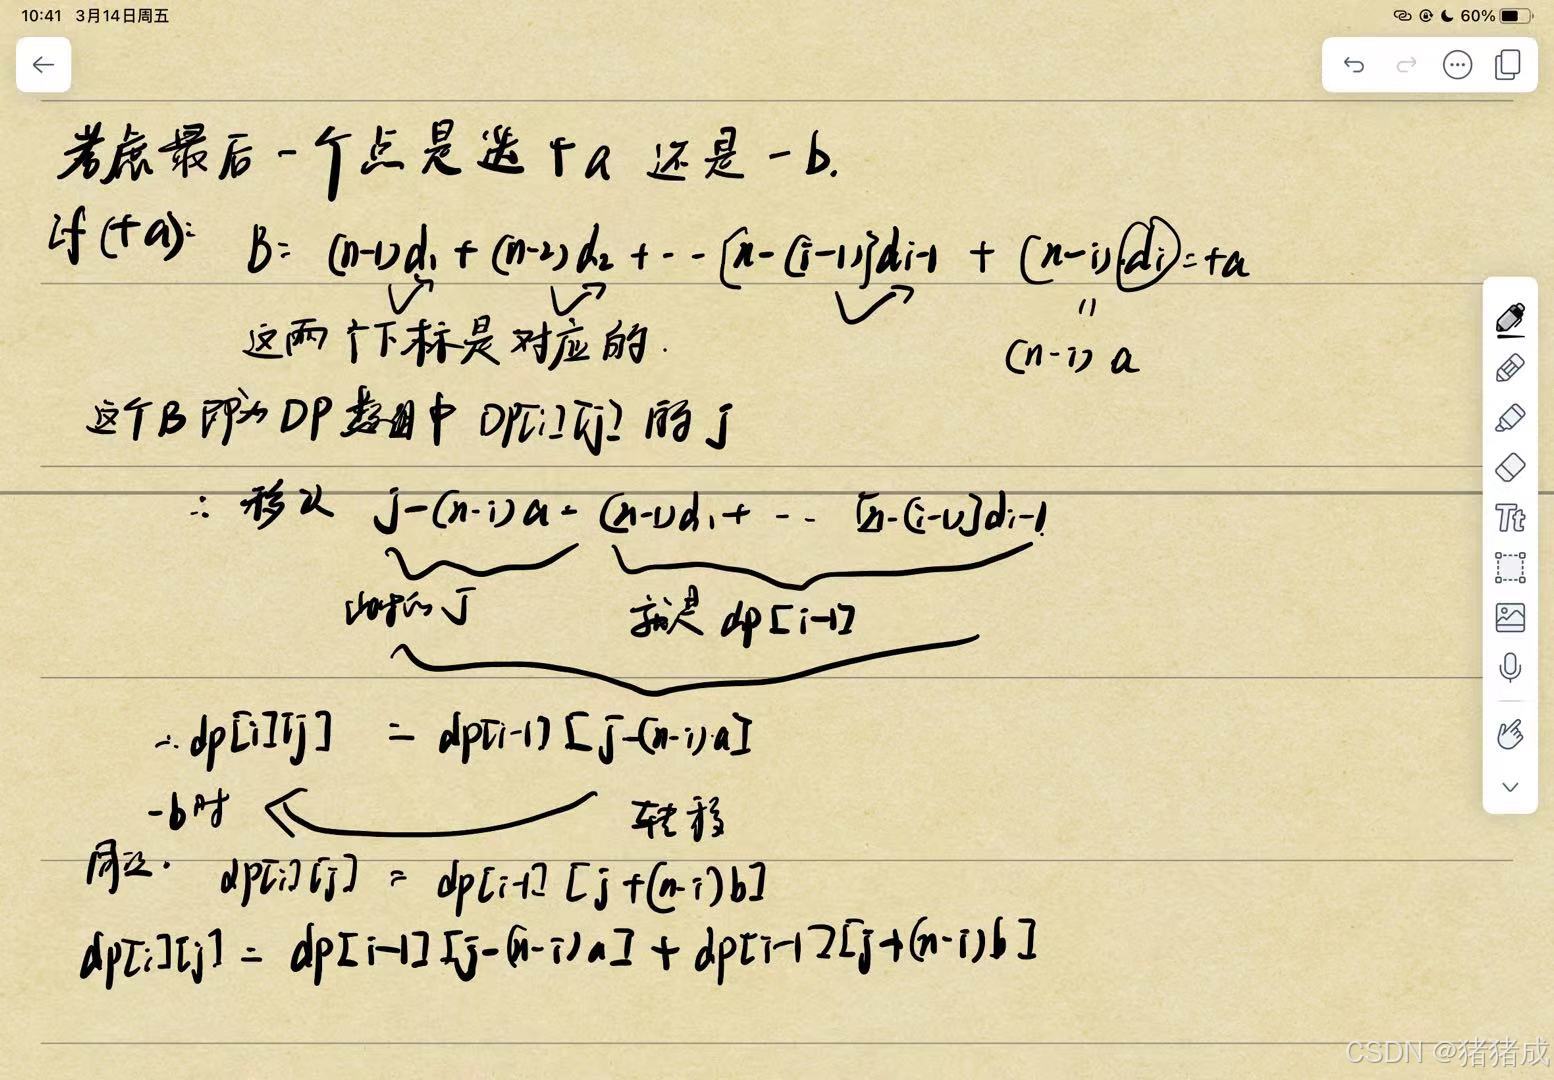 10:41 3月14日周五
60%
考虑最后一个点是选 +a 还是 -b.
if (+a): B= (n-1)d₁ + (n-2)d₂ + -- [n-(i-1)]di-1 + (n-i)(di)=+a
这两个下标是对应的.
(n-i) a
这个B即为DP数组中 DP[i][j] 的 j
∴ 移项 j-(n-i)a = (n-1)d₁+ -- [n-(i-1)]di-1
此时的 j
就是 dp[i-1]
∴ dp[i][j] = dp[i-1][j-(n-i)a]
-b时
转移
同理. dp[i][j] = dp[i-1][j+(n-i)b]
dp[i][j] = dp[i-1][j-(n-i)a] + dp[i-1][j+(n-i)b]
Tt
CSDN @猪猪成